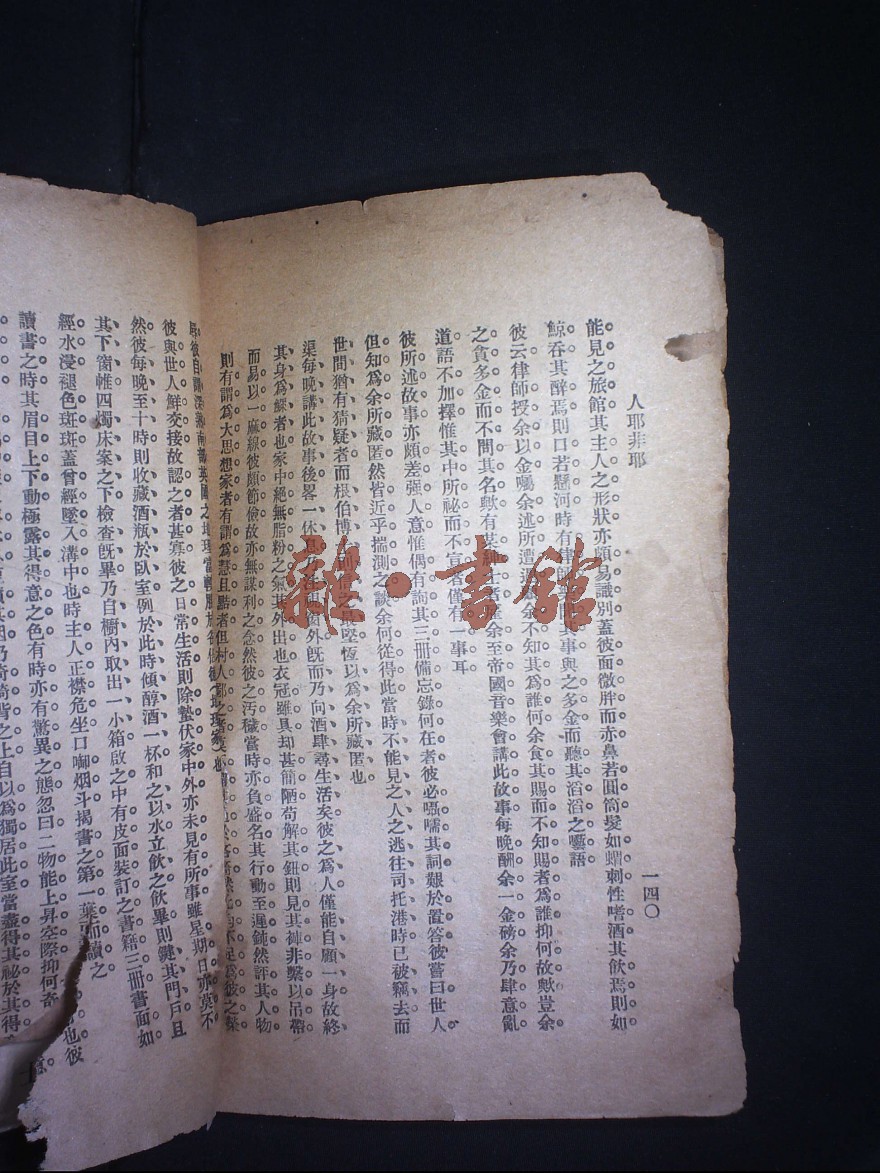 人耶非耶
一四〇
能見之旅館其主人之形狀亦頗易識別蓋彼面微胖而亦鼻若圓筒髮如蝟刺性嗜酒其飲焉則如
鯨吞其醉焉則口若懸河時有律師其事與之多金而聽其滔滔之囈語
彼云律師授余以金囑余述所遭遇余不知其為誰何余食其賜而不知賜者為誰抑何故歟豈余
之貪多金而不問其名歟有某者余至帝國音樂會講此故事每晚酬余一金磅余乃肆意亂
道語不加擇惟其中所祕而不宣者僅有一事耳
彼所述故事亦頗差強人意惟偶有詢其三冊備忘錄何在者彼必囁嚅其詞艱於置答彼嘗曰世人
但知為余所藏匿然皆近乎揣測之談余何從得此當時不能見之人之逃往司托港時已被竊去而
世間猶有猜疑者而根伯博堅恆以為余所藏匿也
渠每晚講此故事後畧一休息乃窗外旣而乃向酒肆尋生活矣彼之為人僅能自顧一身故終
其身為鰥者也家中絕無脂粉之氣其外出也衣冠雖具却甚簡陋苟解其鈕則見其褲非繫以吊帶
而易以一麻線彼頗節儉故亦無謀利之念然彼之汚穢當時亦負盛名其行動至遲鈍然評其人物
則有謂為大思想家者有謂為慧且黠者但村人
彼自英國之地理
彼與世人鮮交接故認之者甚寡彼之日常生活則除蟄伏家中外亦未見有所事雖星期日亦莫不
然彼每晚至十時則收藏酒瓶於臥室例於此時傾醇酒一杯和之以水立飲之飲畢則鍵其門戶且
其下窗帷四燭床案之下檢查旣畢乃自櫥內取出一小箱啟之中有皮面裝訂之書籍三冊書面如
經水浸褪色斑斑蓋曾經墜入溝中也時主人正襟危坐口啣烟斗揭書之第一葉而讀之
讀書之時其眉目上下動極露其得意之色有時亦有驚異之態忽曰二物能上昇空際抑何奇
也彼
椅背之上自以為獨居此室當盡得其祕於其得
雜·書館